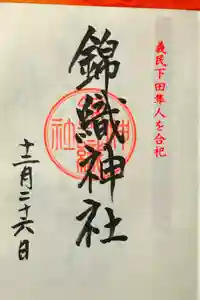 義民下田隼人を合祀
錦織神社
十二月二十六日